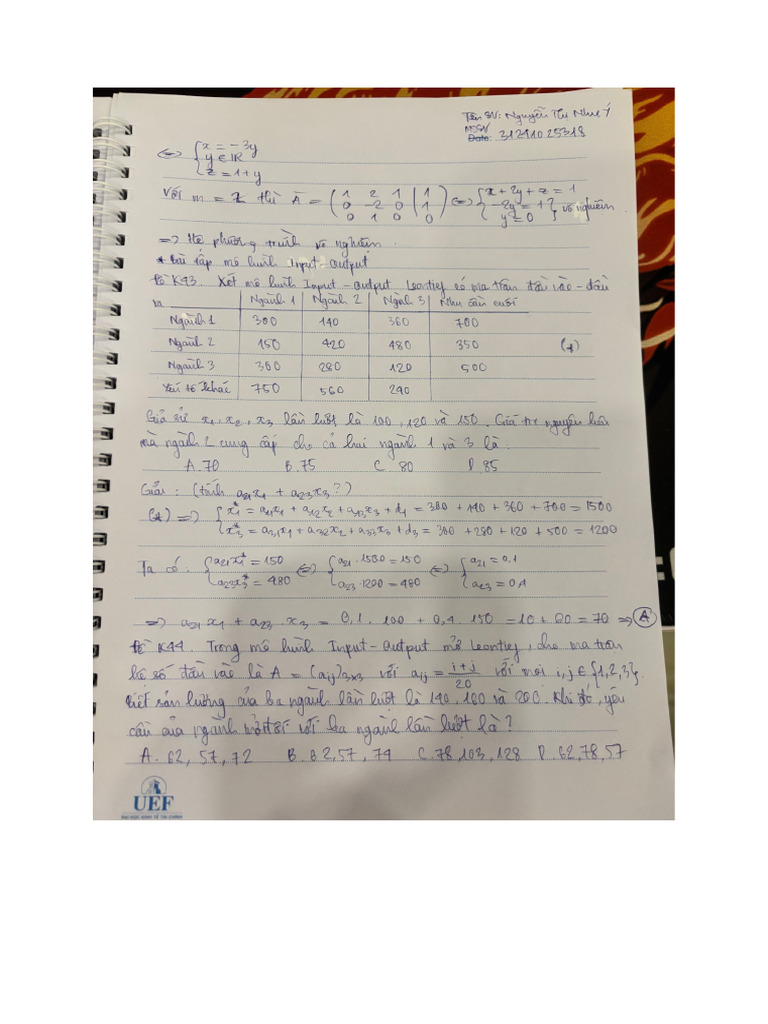 Tên SV: Nguyễn Thị Như Ý
MSSV
Date: 31241025318
⇔ { x = -3y
y ∈ IR
z = 1 + y
Với m = 2 thì Ā = ( 1 2 1 | 1
0 -2 0 | 1
0 1 0 | 0 ) ⇔ { x + 2y + z = 1
-2y = 1
y = 0 } vô nghiệm
=> Hệ phương trình vô nghiệm.
* Bài tập mô hình input - output
Đề K43. Xét mô hình Input - output Leontief có ma trận đầu vào - đầu
ra
Ngành 1 Ngành 2 Ngành 3 Nhu cầu cuối
Ngành 1 300 140 360 700
Ngành 2 150 420 480 350 (*)
Ngành 3 300 280 120 500
Yếu tố khác 750 560 240
Giả sử x1, x2, x3 lần lượt là 100, 120 và 150. Giá trị nguyên liệu
mà ngành 2 cung cấp cho cả hai ngành 1 và 3 là.
A. 70 B. 75 C. 80 D. 85
Giải: (tính a21x1 + a23x3?)
(*) => { x1* = a11x1 + a12x2 + a13x3 + d1 = 300 + 140 + 360 + 700 = 1500
x3* = a31x1 + a32x2 + a33x3 + d3 = 300 + 280 + 120 + 500 = 1200
Ta có: { a21x1* = 150
a23x3* = 480 ⇔ { a21 . 1500 = 150
a23 . 1200 = 480 ⇔ { a21 = 0,1
a23 = 0,4
=> a21x1 + a23 . x3 = 0,1 . 100 + 0,4 . 150 = 10 + 60 = 70 => A
Đề K44. Trong mô hình Input - output mở Leontief, cho ma trận
hệ số đầu vào là A = (aij)3x3 với aij = i + j / 20 với mọi i, j ∈ {1,2,3}.
Biết sản lượng của ba ngành lần lượt là 140, 160 và 200. Khi đó, yêu
cầu của ngành mở đối với ba ngành lần lượt là?
A. 62, 57, 72 B. 82, 57, 74 C. 78, 103, 128 D. 62, 78, 57
UEF
ĐẠI HỌC KINH TẾ TÀI CHÍNH